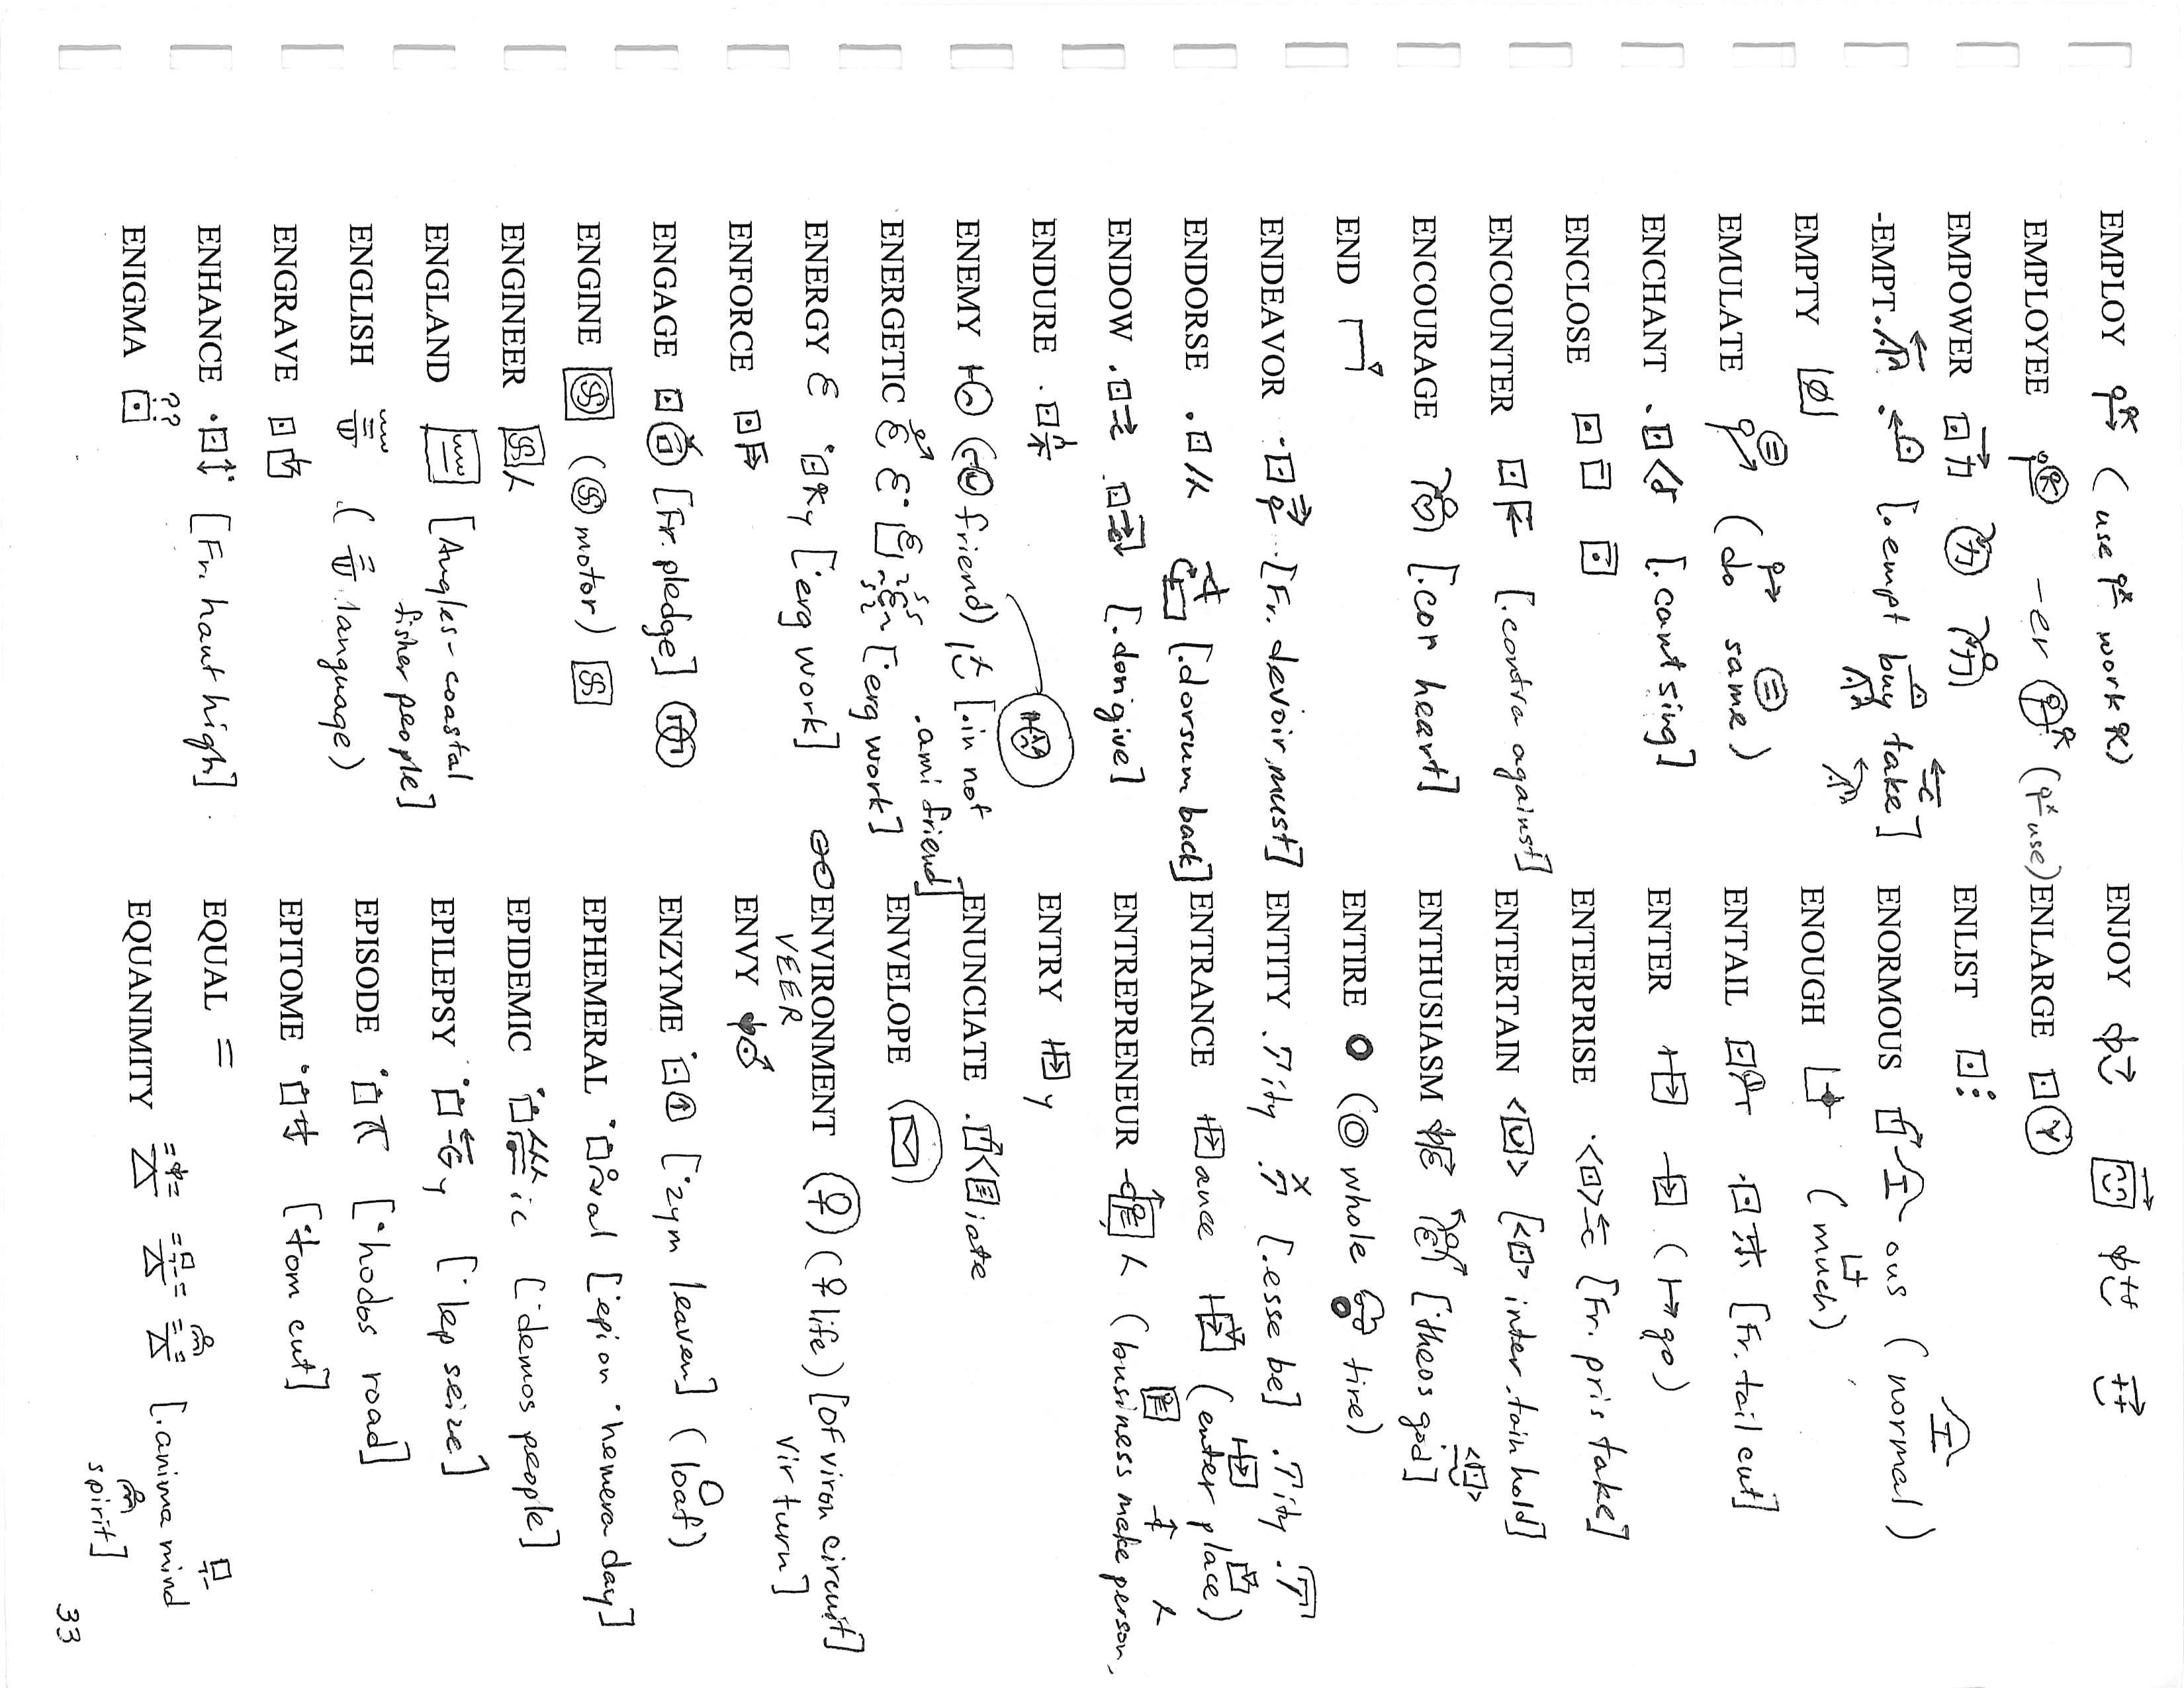 EMPLOY (use work)
EMPLOYEE -er (use)
EMPOWER
-EMPT. [.empt buy take]
EMPTY
EMULATE (do same)
ENCHANT . [.cant sing]
ENCLOSE
ENCOUNTER [.contra against]
ENCOURAGE [.cor heart]
END
ENDEAVOR [Fr. devoir, must]
ENDORSE . [.dorsum back]
ENDOW . [.don give]
ENDURE .
ENEMY (friend) [.in not
.ami friend]
ENERGETIC [·erg work]
ENERGY y [·erg work]
ENFORCE
ENGAGE [Fr. pledge]
ENGINE (motor)
ENGINEER
ENGLAND [Angles-coastal
fisher people]
ENGLISH (language)
ENGRAVE
ENHANCE [Fr. haut high]
ENIGMA ??
ENJOY
ENLARGE
ENLIST
ENORMOUS ous (normal)
ENOUGH (much)
ENTAIL [Fr. tail cut]
ENTER (go)
ENTERPRISE [Fr. pris take]
ENTERTAIN [inter .tain hold]
ENTHUSIASM [·theos god]
ENTIRE (whole tire)
ENTITY ity [.esse be] ity
ENTRANCE ance (enter place)
ENTREPRENEUR (business make person,
ENTRY y
ENUNCIATE iate
ENVELOPE
ENVIRONMENT (life) [OF viron circuit]
VEER vir turn]
ENVY
ENZYME [·zym leaven] (loaf)
EPHEMERAL al [·epi on ·hemera day]
EPIDEMIC ic [·demos people]
EPILEPSY y [·lep seize]
EPISODE [·hodos road]
EPITOME [·tom cut]
EQUAL =
EQUANIMITY [.anima mind
spirit]
33